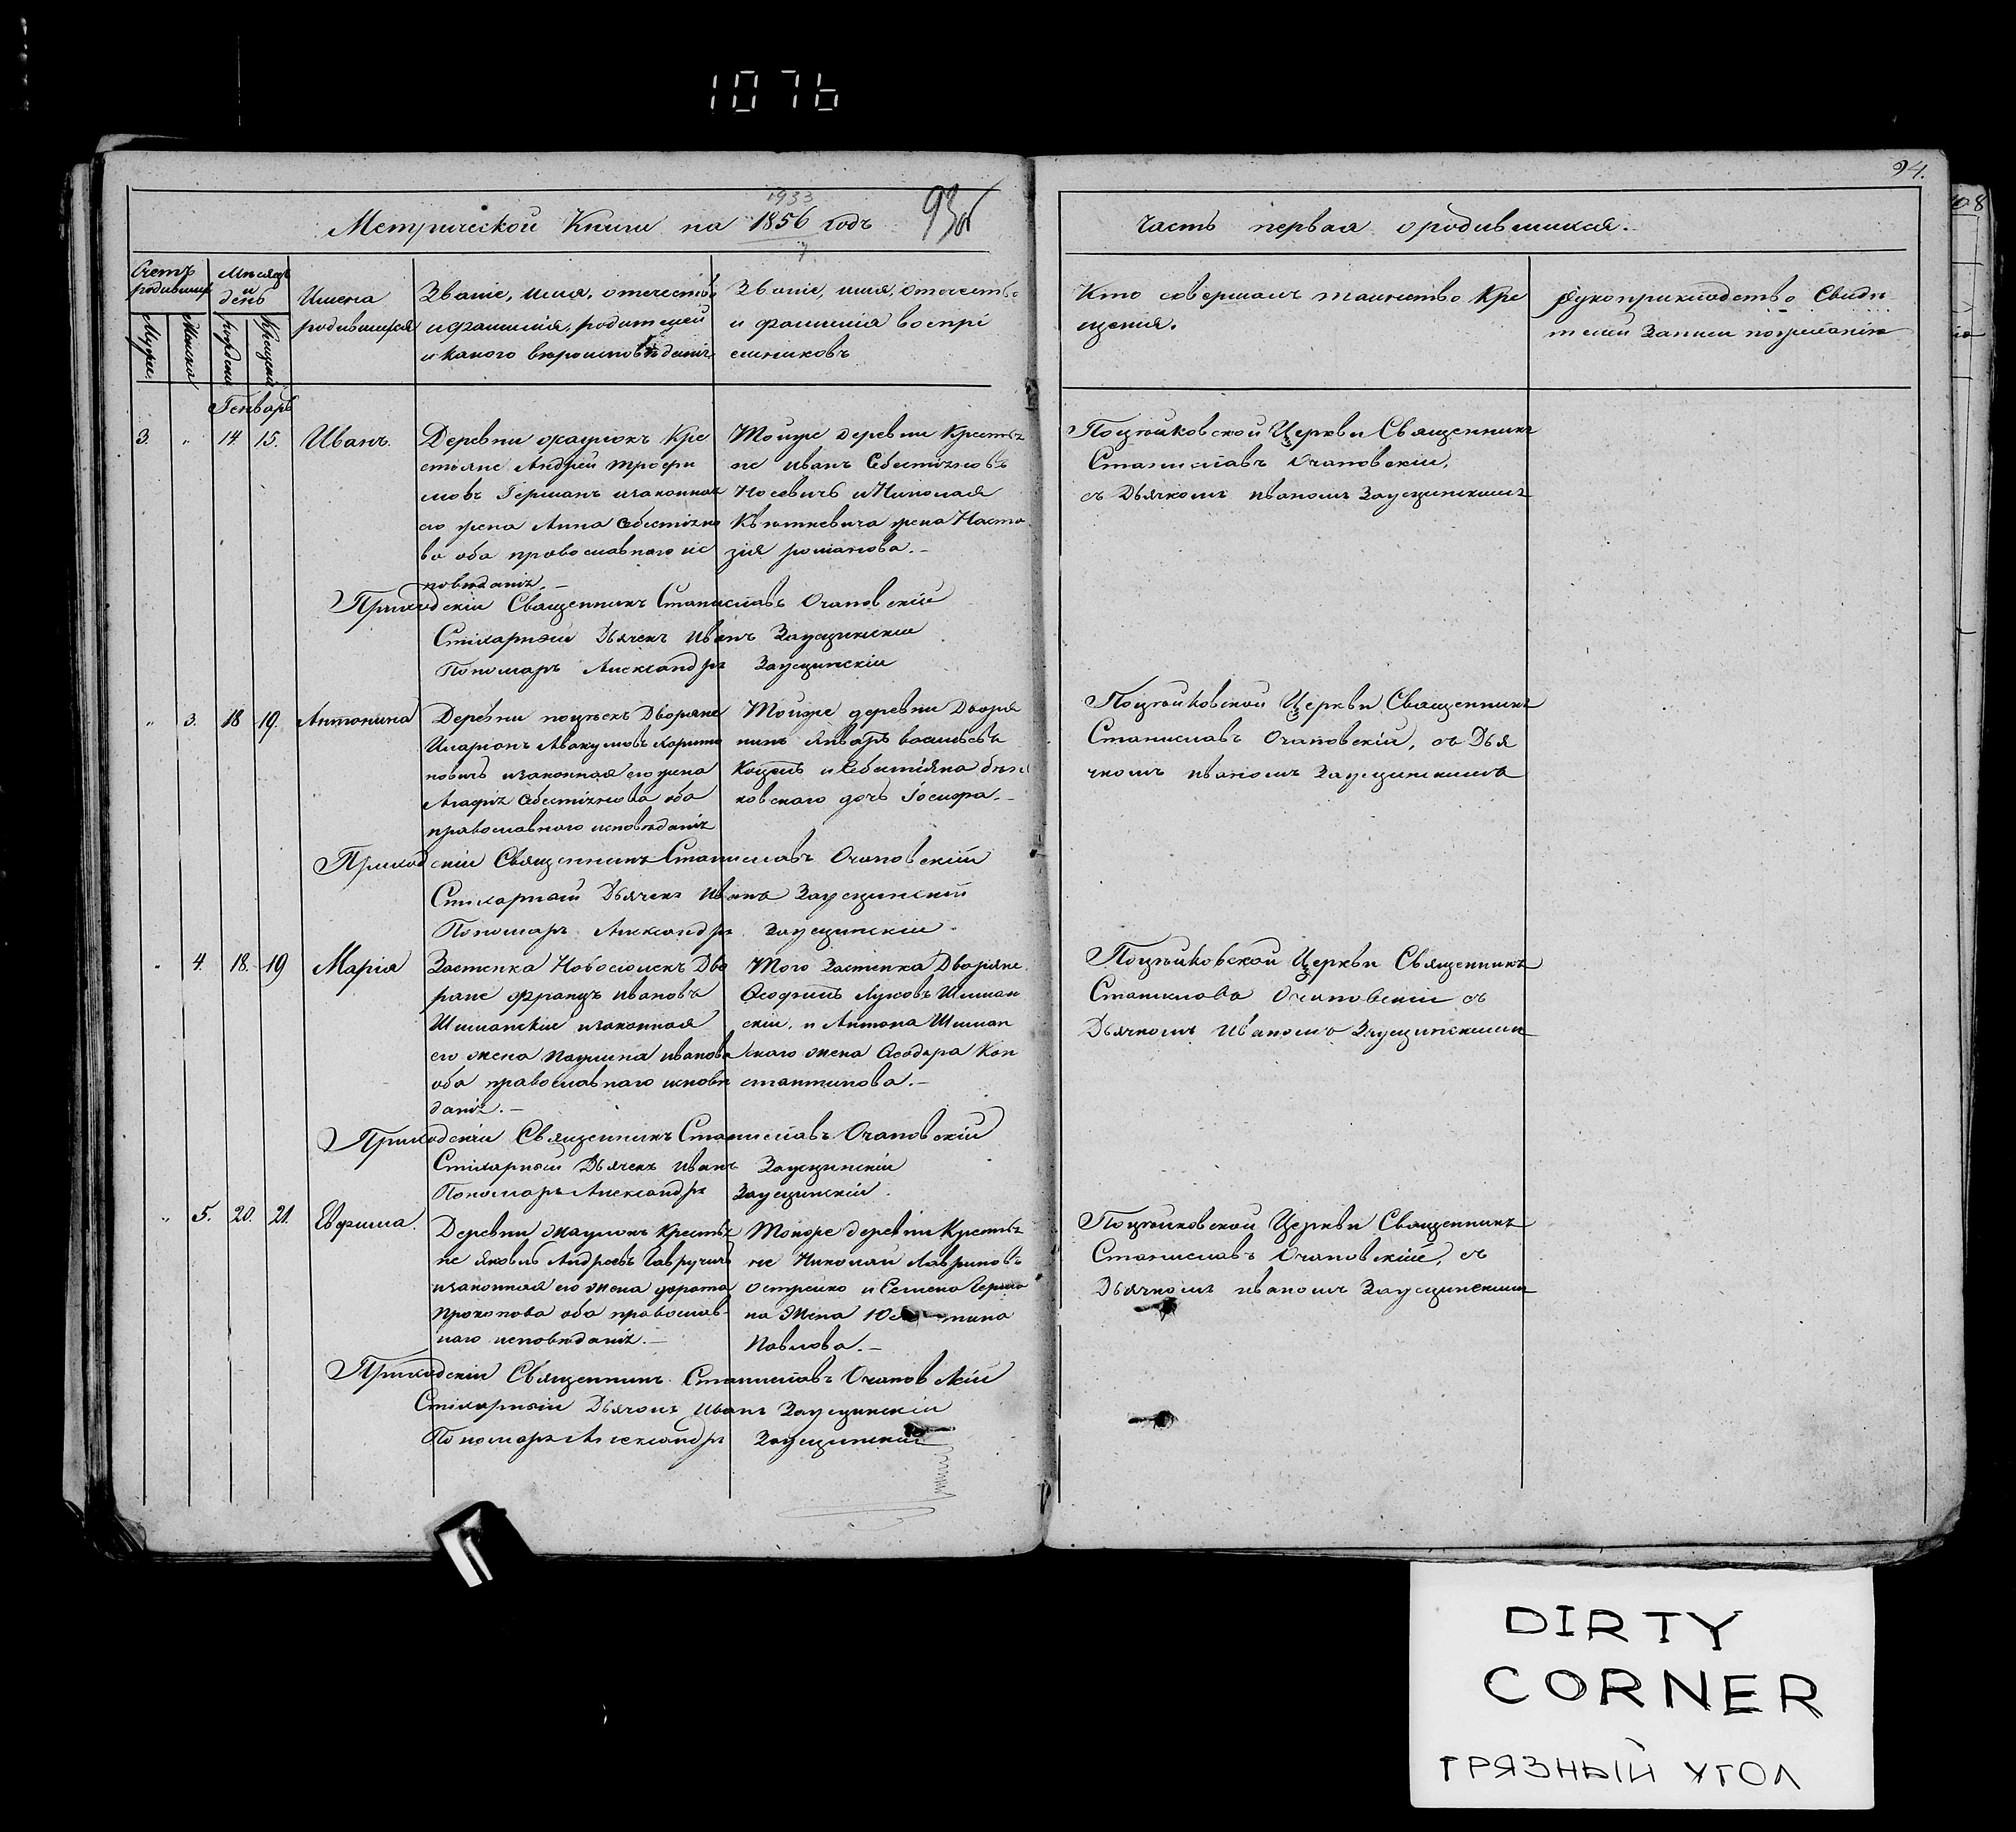 1076
94.
1933
Метрической Книги на 1856 годъ
93об
часть первая о родившихся.
Счетъ родивших
Мѣсяцъ и день
Имена родившихся
Званіе, имя, отечество
и фамилія, родителей
и какого вѣроисповѣданія
Званіе, имя, отечество
и фамилія воспрі
емниковъ
Кто совершалъ таинство Кре
щенія.
Рукоприкладство Свидѣ
телей Записи по желанію
Мужес.
Женска
рожденія
Крещенія
Генварь
3. " 14. 15. Иванъ.
Деревни Жаулокъ Кре
стьяне Андрей Трофи
мовъ Германъ изаконная
его жена Анна Себестіяно
ва оба православнаго ис
повѣданія. –
Тойже деревни Крестья
не Иванъ Себестіяновъ
Носевичъ и Николая
Квяткевича жена Наста
зія романова. –
Поцѣйковской Церкви Священникъ
Станиславъ Очаповскій,
съ Дьячкомъ иваномъ Заусцинскимъ
Приходскій Священникъ Станиславъ Очаповскій
Стіхарный Дьячекъ Иванъ Заусцинскій
Пономаръ Александръ Заусцинскій
" 3. 18 19. Антонина
Деревни поцѣекъ Дворяне
Иларіонъ Авакумовъ Харито
новичъ изаконная его жена
Агафія Себестіянова оба
православнаго исповѣданія
Тойже деревни Дворя
нинъ Январъ васильевъ
Коцелъ и Себестіяна бѣль
ковскаго дочъ Іосифа. –
Поцѣйковской Церкви Священникъ
Станиславъ Очаповскій, съ Дья
чкомъ иваномъ Заусцинскимъ
Приходскій Священникъ Станиславъ Очаповскій
Стіхарный Дьячекъ Иванъ Заусцинскій
Пономаръ Александръ Заусцинскій
" 4. 18. 19 Марія
Застенка Новосіолекъ Дво
ряне Францъ ивановъ
Шиманскій изаконная
его жена Паулина иванова
оба православнаго исповѣ
данія. –
Того Застенка Дворяне
Ѳеофилъ Луковъ Шиман
скій, и Антона Шиман
скаго жена Ѳеодора Кон
стантинова. –
Поцѣйковской Церкви Священникъ
Станиславъ Очаповскій съ
Дьячкомъ Иваномъ Заусцинскимъ
Приходскій Священникъ Станиславъ Очаповскій
Стіхарный Дьячекъ Иванъ Заусцинскій
Пономаръ Александръ Заусцинскій.
" 5. 20. 21. Евфима.
Деревни Жаулокъ Крестья
не яковъ Андреевъ Гавручикъ
изаконная его жена дорота
прокопова оба православ-
наго исповѣданія. –
Тойже деревни Крестья
не Николай Лавриновъ
Острейко и Семена Герма
на Жена
Павлова. –
Поцѣйковской Церкви Священникъ
Станиславъ Очаповскій, съ
Дьячкомъ иваномъ Заусцинскимъ
Приходскій Священникъ Станиславъ Очаповскій
Стіхарный Дьячокъ Иванъ Заусцинскій
Пономаръ Александръ Заусцинскій
DIRTY
CORNER
ГРЯЗНЫЙ УГОЛ